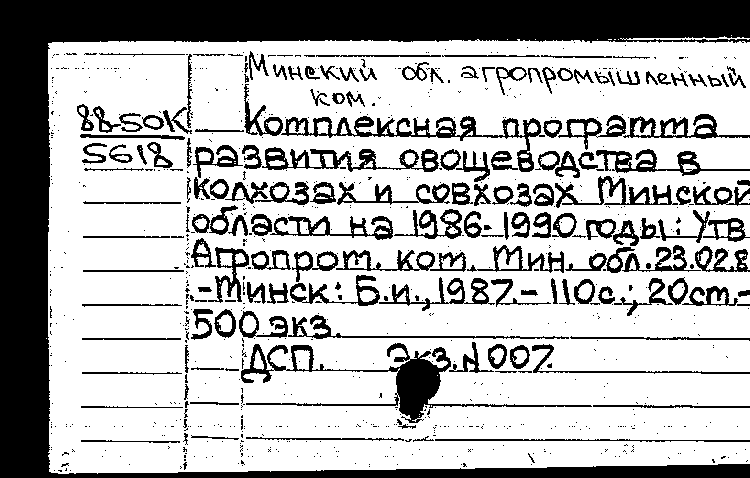 Минский обл. агропромышленный
ком.
88-50К Комплексная программа
5618 развития овощеводства в
колхозах и совхозах Минской
области на 1986-1990 годы: Утв
Агропром. ком. Мин. обл. 23.02.8
.-Минск: Б.и., 1987.- 110с.; 20см.-
500 экз.
ДСП. Экз.N 007.